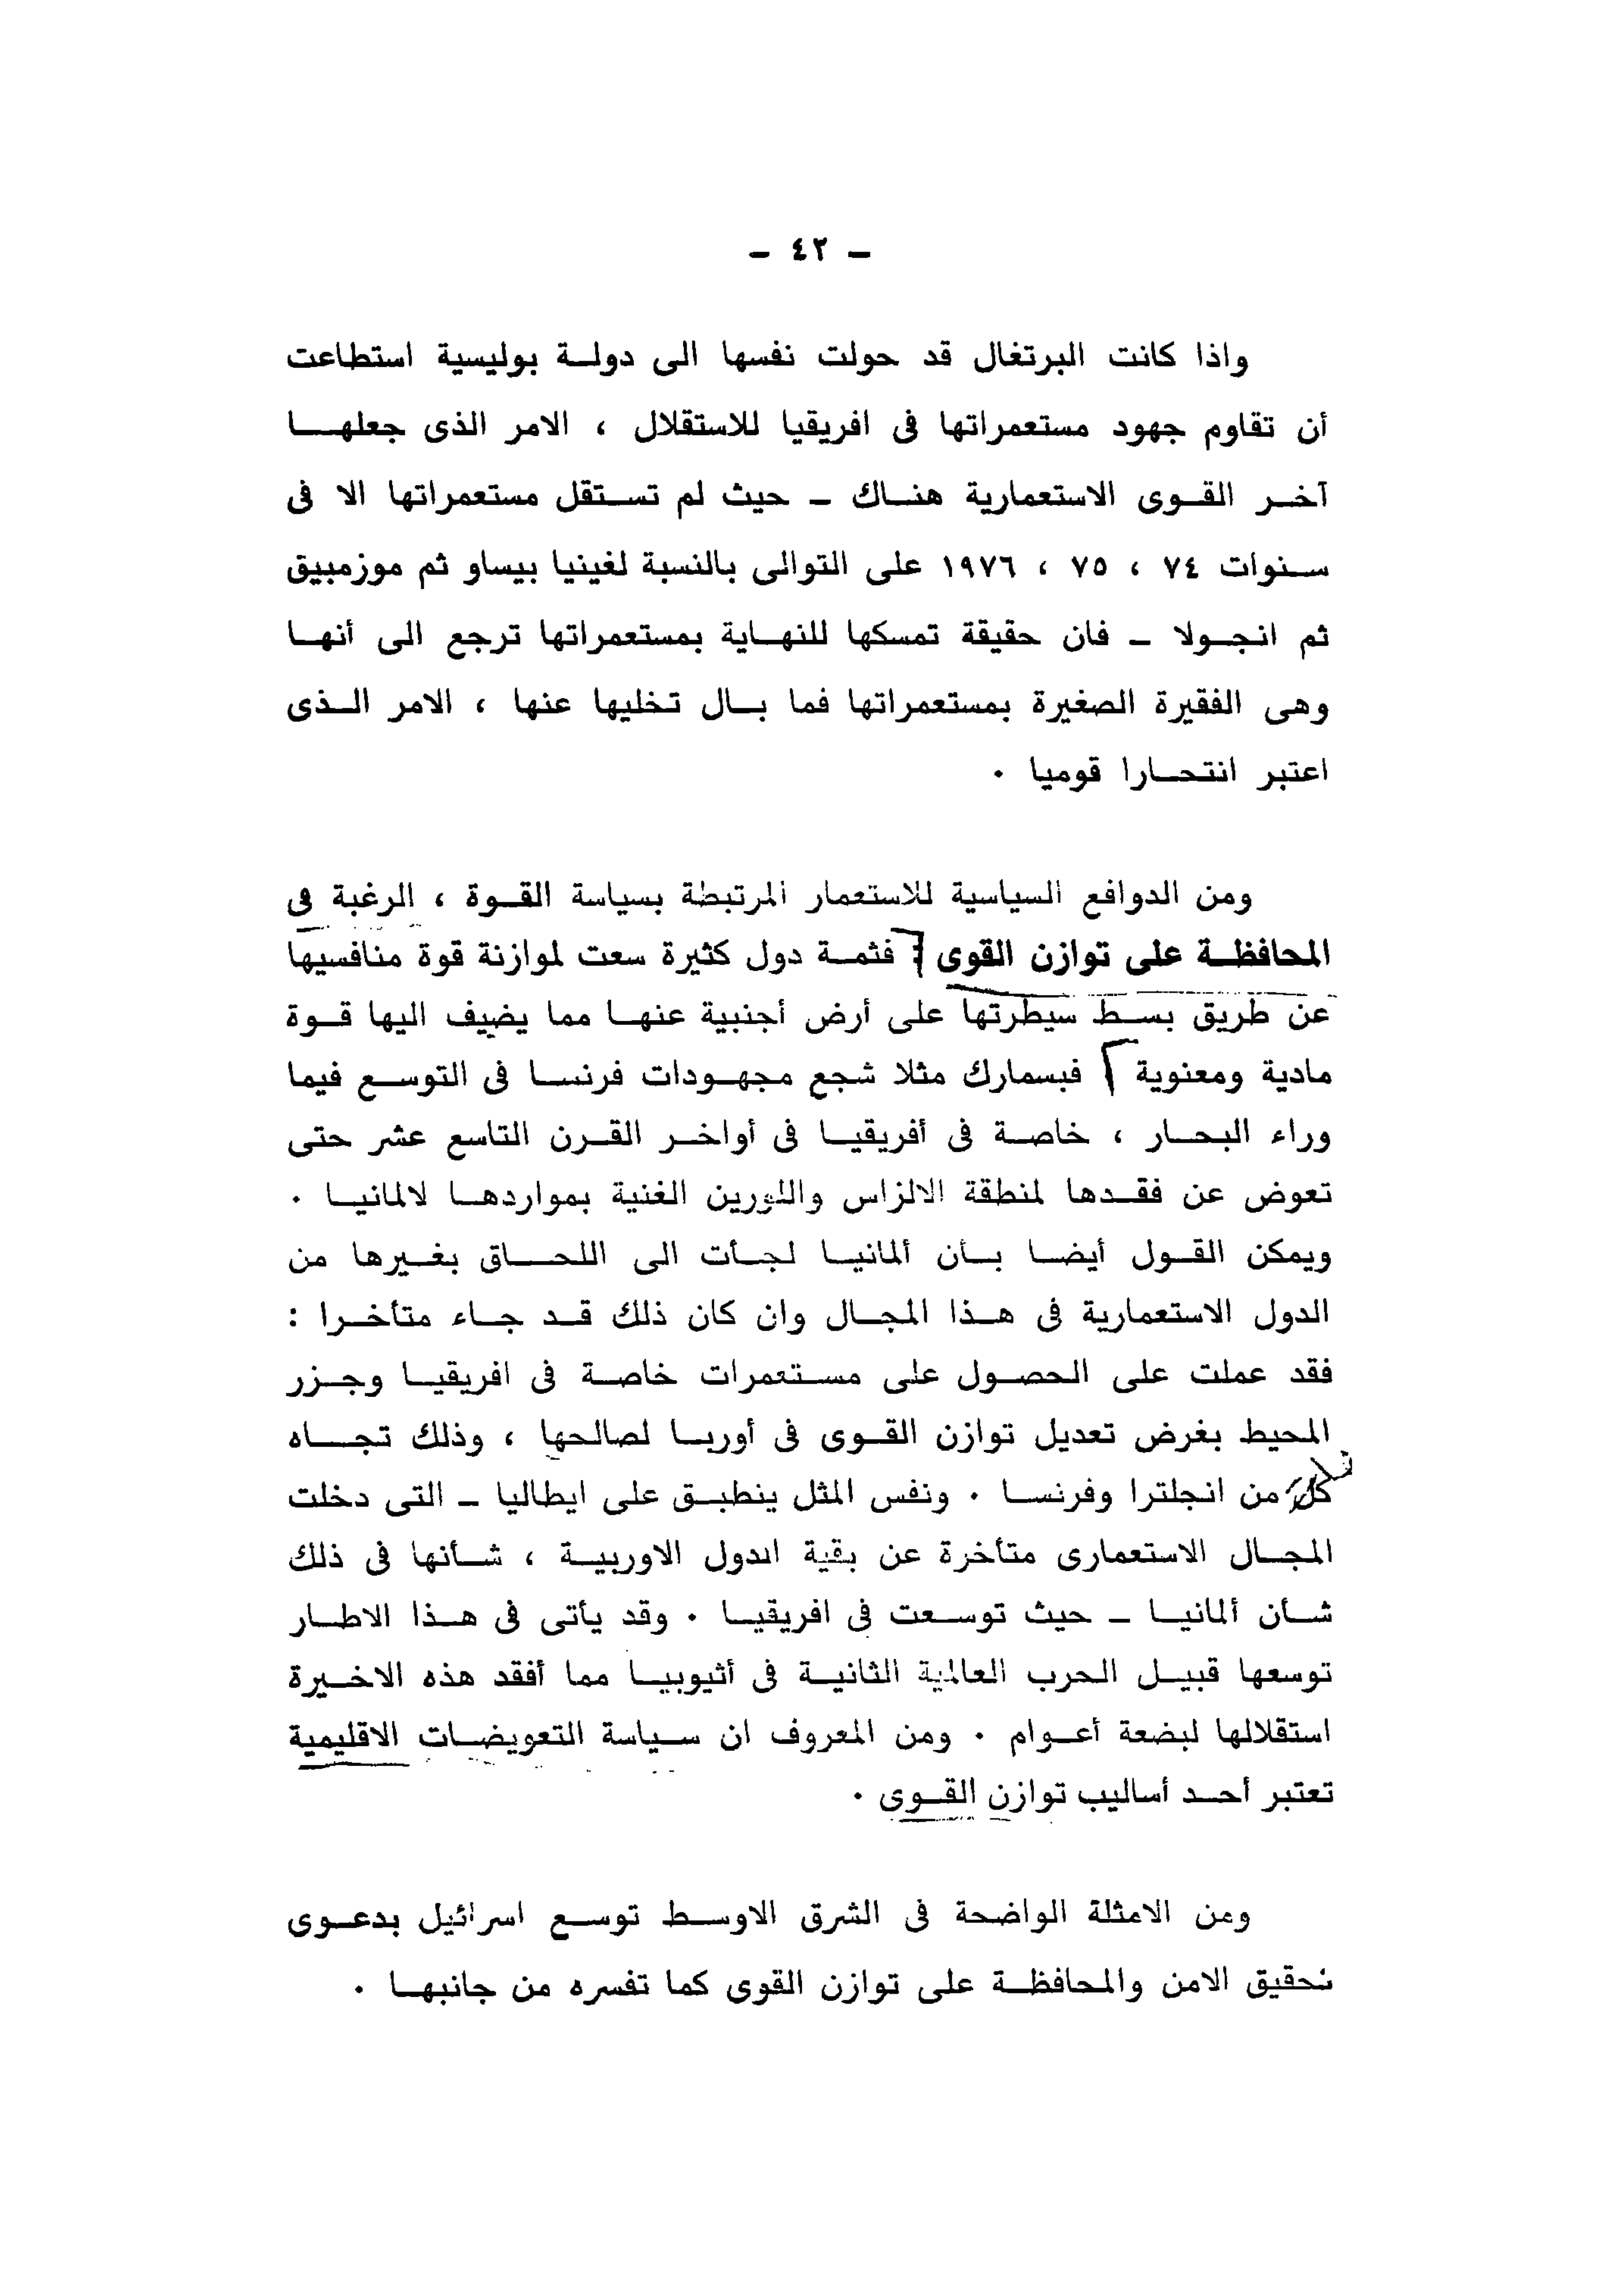 - ٤٢ -
واذا كانت البرتغال قد حولت نفسها الى دولة بوليسية استطاعت
أن تقاوم جهود مستعمراتها فى افريقيا للاستقلال ، الامر الذى جعلها
آخر القوى الاستعمارية هناك - حيث لم تستقل مستعمراتها الا فى
سنوات ٧٤ ، ٧٥ ، ١٩٧٦ على التوالى بالنسبة لغينيا بيساو ثم موزمبيق
ثم انجولا - فان حقيقة تمسكها للنهاية بمستعمراتها ترجع الى أنها
وهى الفقيرة الصغيرة بمستعمراتها فما بال تخليها عنها ، الامر الذى
اعتبر انتحارا قوميا .
ومن الدوافع السياسية للاستعمار المرتبطة بسياسة القوة ، الرغبة فى
المحافظة على توازن القوى : فثمة دول كثيرة سعت لموازنة قوة منافسيها
عن طريق بسط سيطرتها على أرض أجنبية عنها مما يضيف اليها قوة
مادية ومعنوية فبسمارك مثلا شجع مجهودات فرنسا فى التوسع فيما
وراء البحار ، خاصة فى أفريقيا فى أواخر القرن التاسع عشر حتى
تعوض عن فقدها لمنطقة الالزاس واللورين الغنية بمواردها لالمانيا .
ويمكن القول أيضا بأن ألمانيا لجأت الى اللحاق بغيرها من
الدول الاستعمارية فى هذا المجال وان كان ذلك قد جاء متأخرا :
فقد عملت على الحصول على مستعمرات خاصة فى افريقيا وجزر
المحيط بغرض تعديل توازن القوى فى أوربا لصالحها ، وذلك تجاه
كل من انجلترا وفرنسا . ونفس المثل ينطبق على ايطاليا - التى دخلت
المجال الاستعمارى متأخرة عن بقية الدول الاوربية ، شأنها فى ذلك
شأن ألمانيا - حيث توسعت فى افريقيا . وقد يأتى فى هذا الاطار
توسعها قبيل الحرب العالمية الثانية فى أثيوبيا مما أفقد هذه الاخيرة
استقلالها لبضعة أعوام . ومن المعروف ان سياسة التعويضات الاقليمية
تعتبر أحد أساليب توازن القوى .
ومن الامثلة الواضحة فى الشرق الاوسط توسع اسرائيل بدعوى
تحقيق الامن والمحافظة على توازن القوى كما تفسره من جانبها .